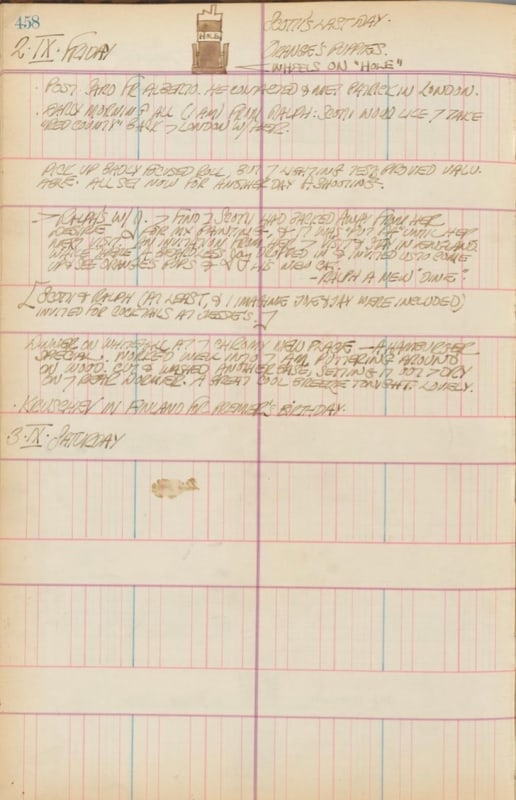 458
2·IX·FRIDAY
HOLE
SCOTTI'S LAST DAY.
ORANGE'S PUPPIES.
WHEELS ON "HOLE"
· POST CARD FR ALBERTO. HE CONTACTED & MET PATRICK IN LONDON.
· EARLY MORNING CALL (1 AM) FROM RALPH: SCOTTI WOULD LIKE 7 TAKE
"RED COUNTY" BACK 7 LONDON W/HER.
PICK UP BADLY FOCUSED ROLL, BUT 7 LIGHTING TEST PROVED VALU-
ABLE. ALL SET NOW FOR ANOTHER DAY SHOOTING.
RALPH'S W/ 7 FIND SCOTTI HAD BACKED AWAY FROM HER
DESIRE FOR MY PAINTING, & IT WAS "PUT OFF" UNTIL HER
NEXT VISIT. AN INVITATION FROM HER 7 VISIT & STAY IN ENGLAND.
WHILE THERE A BEARDLESS JAY DROPPED IN & INVITED US TO COME
UP & SEE ORANGE'S PUPS & HIS NEW CAR.
—RALPH A NEW "DINE".
[SCOTTI & RALPH (AT LEAST, & I IMAGINE JOE & JAY WERE INCLUDED)
INVITED FOR COCKTAILS AT JESSE'S.]
DINNER ON WHITEHALL AT 7 CHROMY NEW PLACE — A HAMBURGER
SPECIAL. WORKED WELL INTO 7 AM, PUTTERING AROUND
ON WOOD. CUT & WASHED ANOTHER BASE, SETTING IT OUT 7 DRY
ON 7 REAR DORMER. A GREAT COOL BREEZE TONIGHT. LOVELY.
· KRUSCHEV IN FINLAND FR PREMIER'S BIRTHDAY.
3·IX·SATURDAY